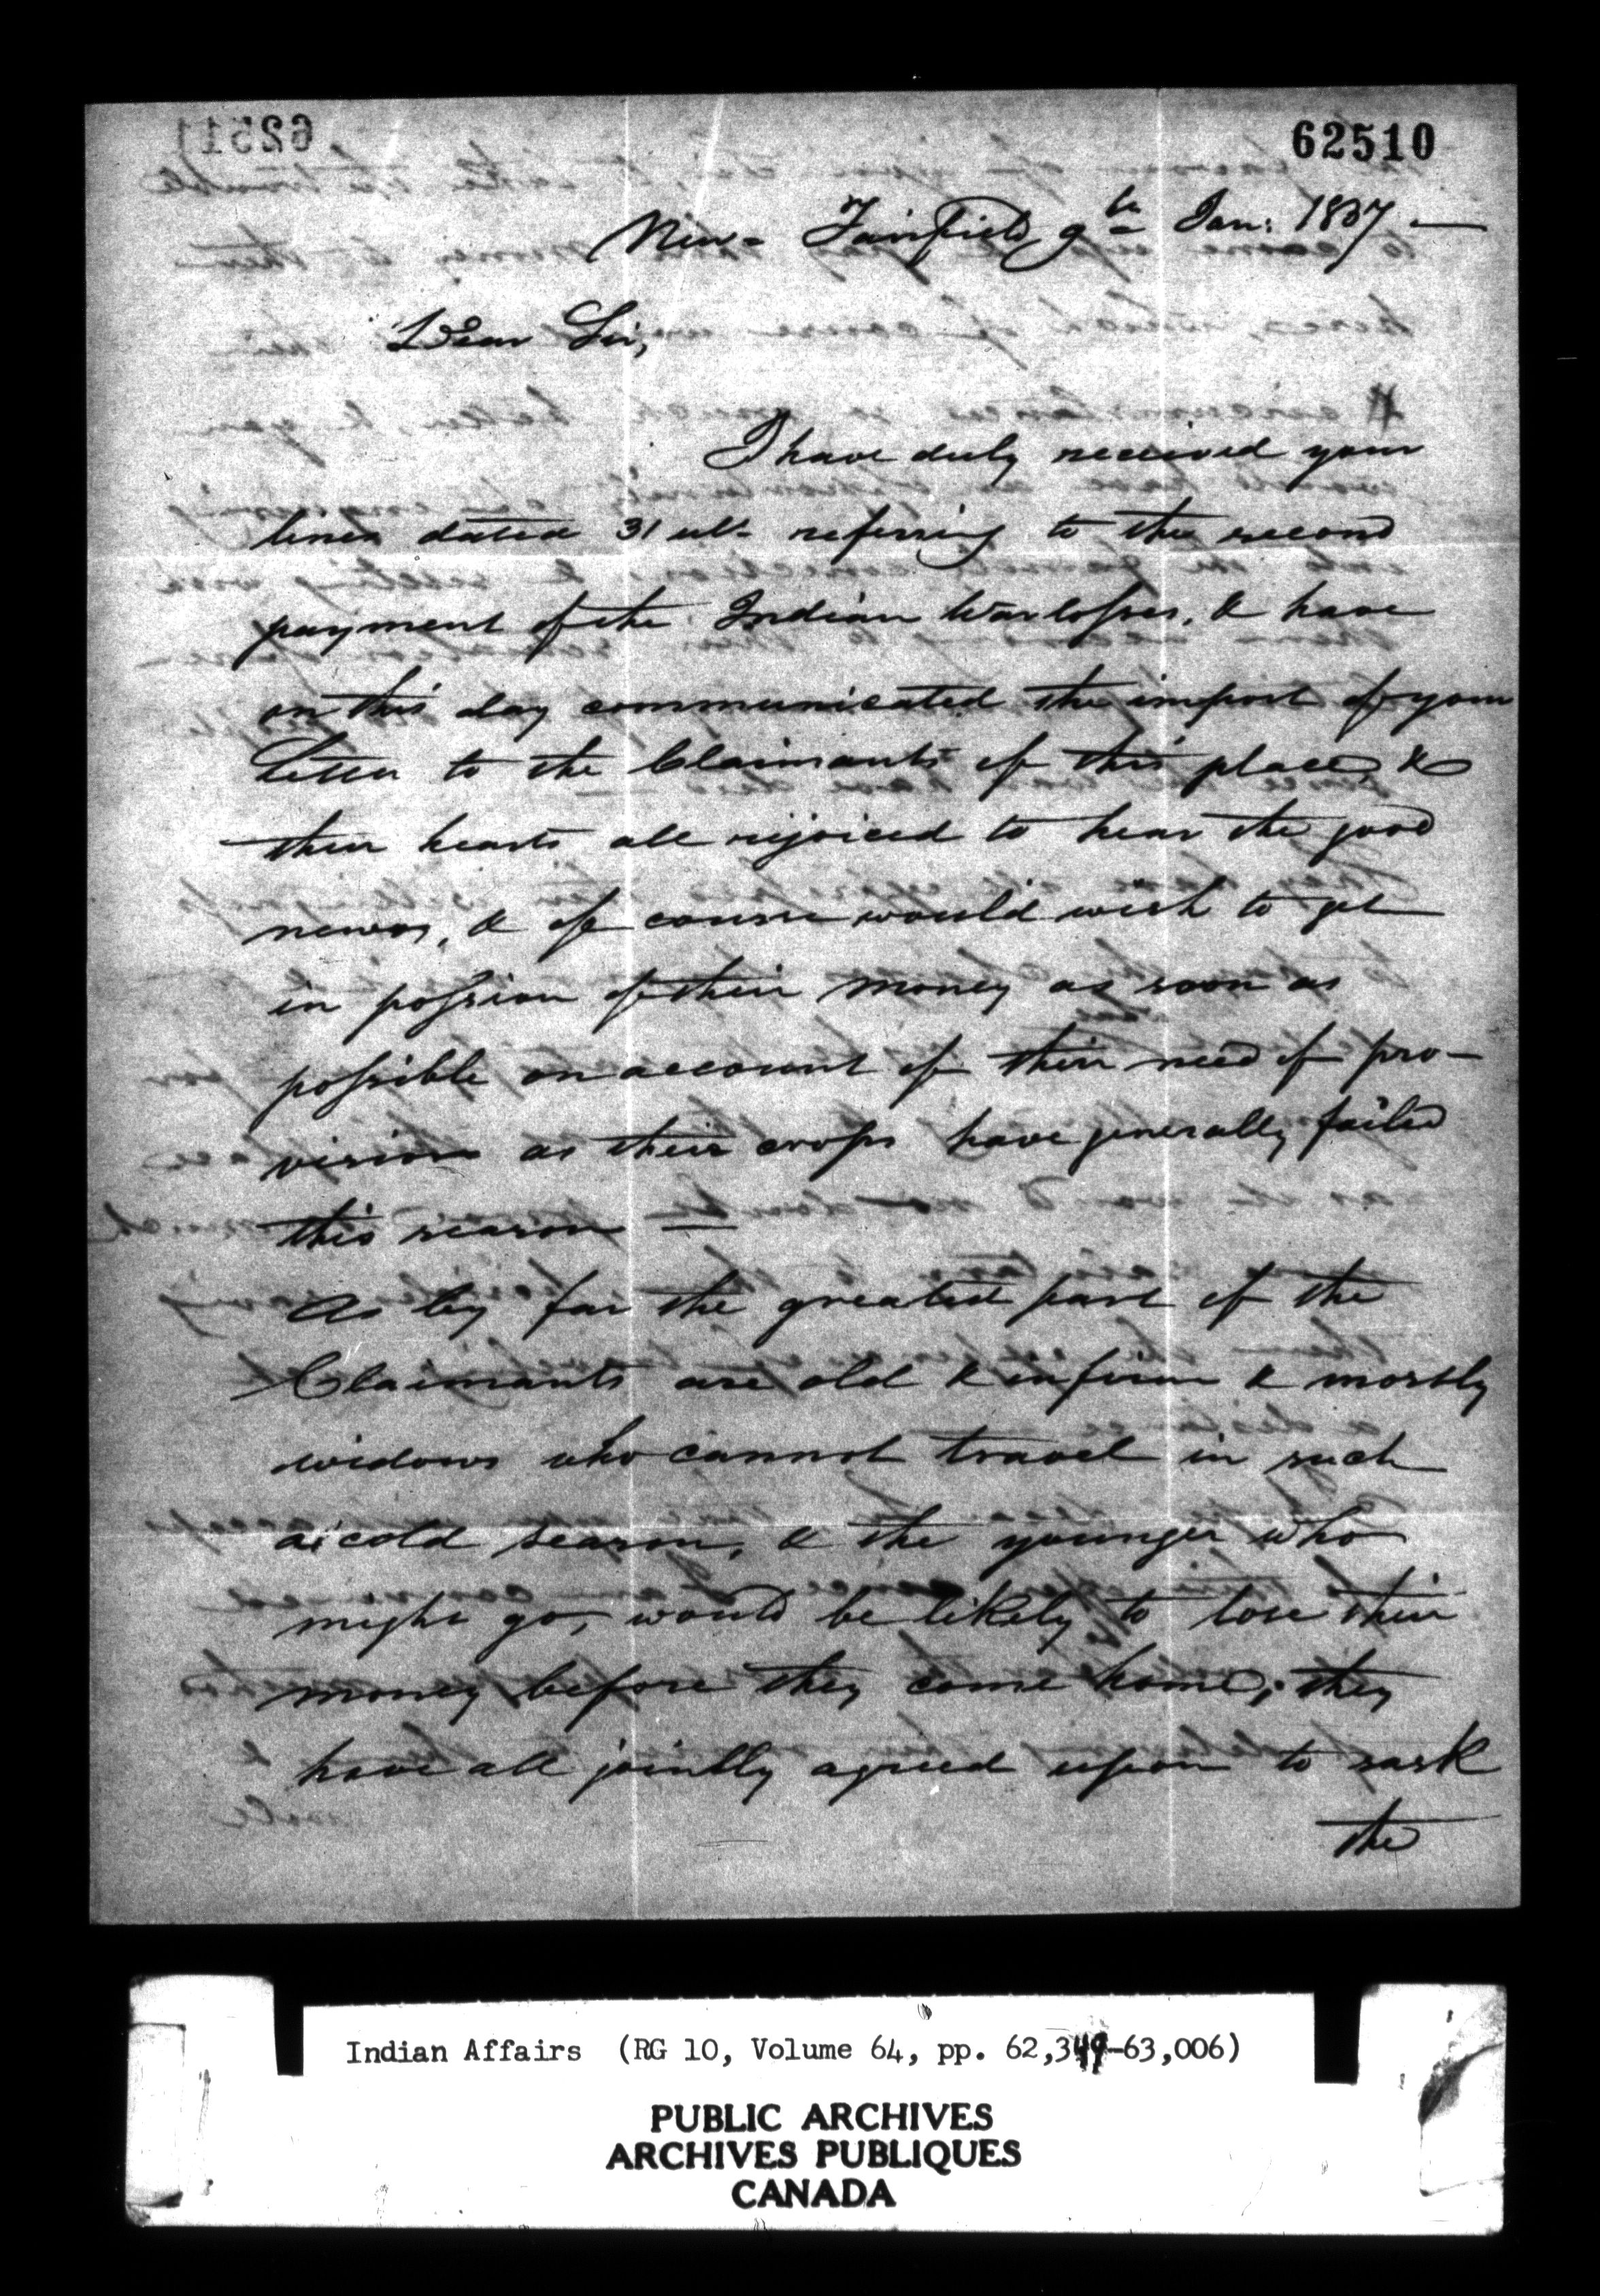 62510
New-Fairfield 9th Jan: 1837 —
Dear Sir,
I have duly received your
lines dated 31 ult. referring to the second
payment of the Indian War losses, & have
on this day communicated the import of your
letter to the Claimants of this place, &
their hearts all rejoiced to hear the good
news, & of course would wish to get
in possion of their money as soon as
possible on account of their need of pro-
vision as their crops have generally failed
this season —
As by far the greatest part of the
Claimants are old & infirm & mostly
widows who cannot travel in such
a cold season, & the younger who
might go, would be likely to lose their
money before they come home; they
have all jointly agreed upon to ask
the
Indian Affairs (RG 10, Volume 64, pp. 62,349-63,006)
PUBLIC ARCHIVES
ARCHIVES PUBLIQUES
CANADA